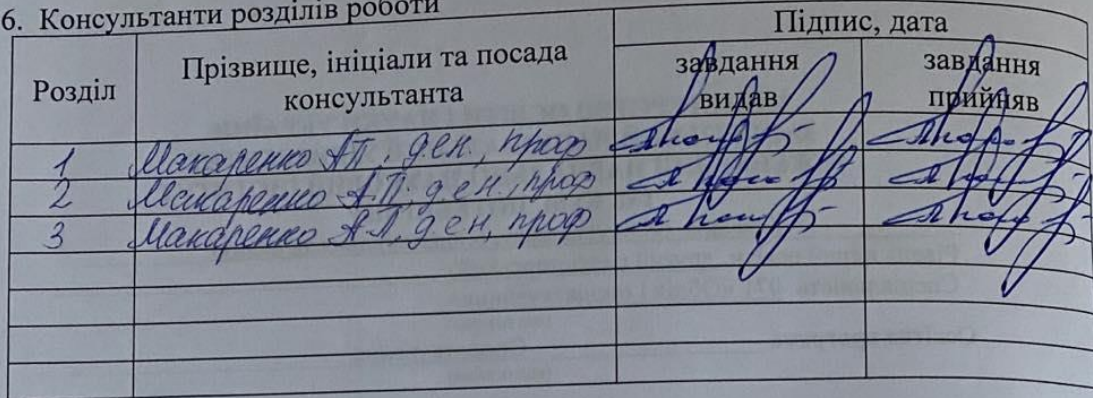 6. Консультанти розділів роботи
Розділ
Прізвище, ініціали та посада
консультанта
Підпис, дата
завдання
видав
завдання
прийняв
1 Макаренко А.П., д.е.н., проф
2 Макаренко А.П., д.е.н., проф
3 Макаренко А.П., д.е.н., проф